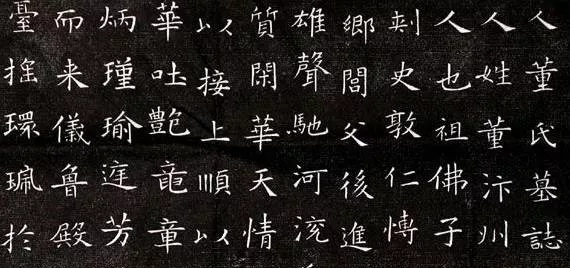 人董氏墓誌
人姓董汴州
人也祖佛子
刺史敦仁愽
鄉閭父後進
雄聲馳河渷
質閑華天情
以接上順以
華吐艶竜章
炳瑾瑜庭芳
而来儀魯殿
臺搖環珮於